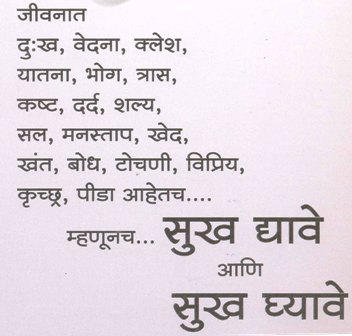 जीवनात
दुःख, वेदना, क्लेश,
यातना, भोग, त्रास,
कष्ट, दर्द, शल्य,
सल, मनस्ताप, खेद,
खंत, बोध, टोचणी, विप्रिय,
कृच्छ्र, पीडा आहेतच....
म्हणूनच... सुख द्यावे
आणि
सुख घ्यावे